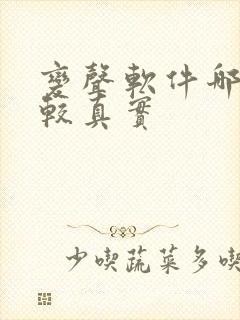 變聲軟件哪
較真實
少喫蔬菜多喫